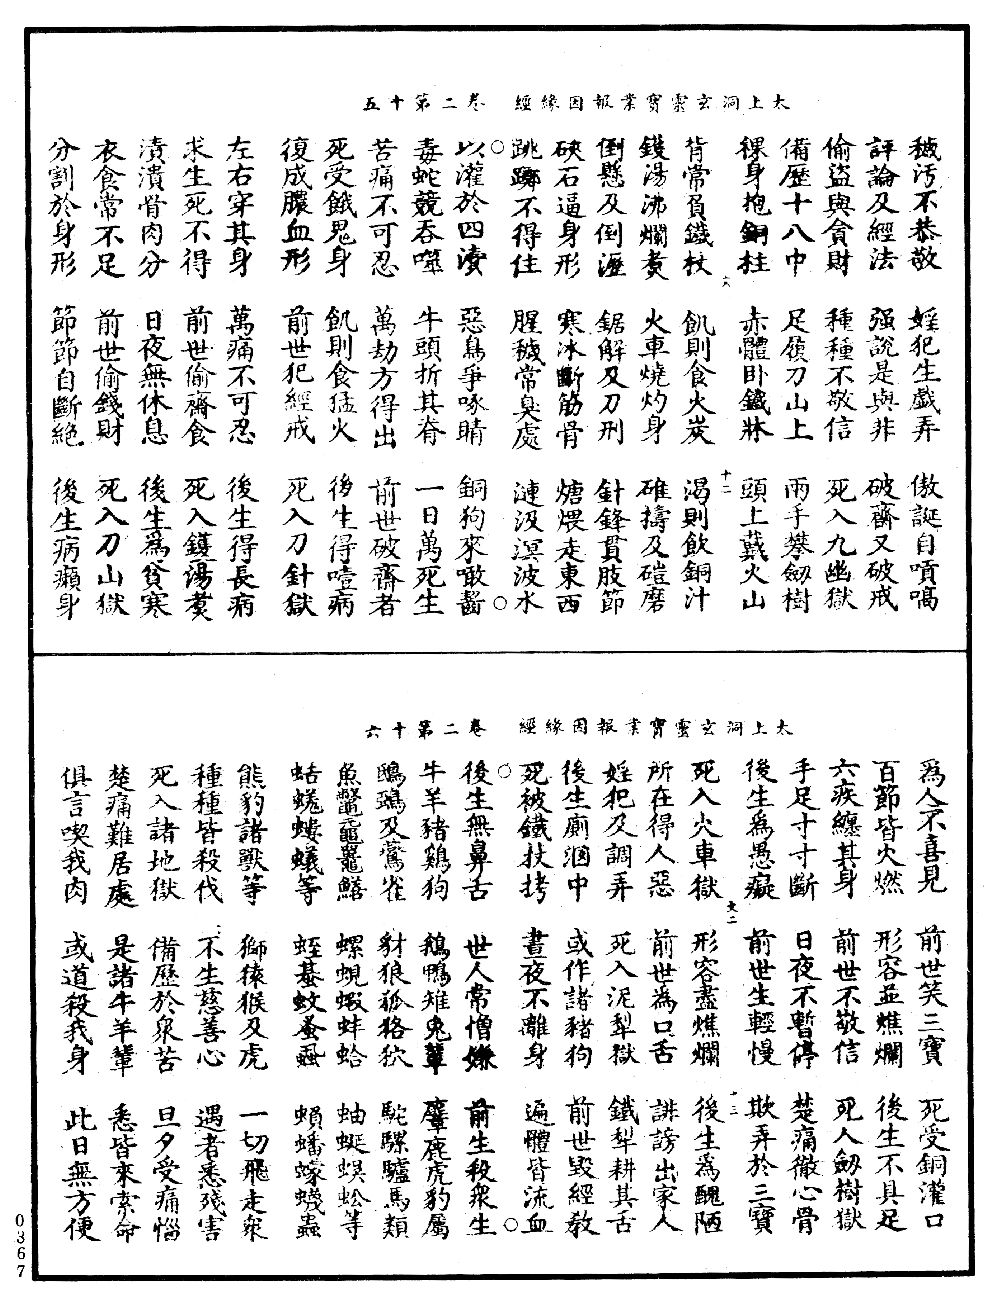 太上洞玄靈寶業報因緣經　卷二第十五
穢污不恭敬　婬犯生戲弄　傲誕自嗊㗣
評論及經法　强說是與非　破齋又破戒
偷盜與貪財　種種不敬信　死入九幽獄
備歷十八中　足履刀山上　兩手攀劒樹
裸身抱銅柱　赤體卧鐵牀　頭上戴火山
背常負鐵杖　飢則食火炭　渴則飲銅汁
鑊湯沸爛煑　火車燒灼身　碓擣及磑磨
倒懸及倒瀝　鋸解及刀刑　針鋒貫肢節
硤石逼身形　寒冰斷筋骨　煻煨走東西
跳躑不得住　腥穢常臭處　漣汲溟波水
以灌於四瀆　惡鳥爭啄睛　銅狗來噉齧
毒蛇競吞噬　牛頭折其脊　一日萬死生
苦痛不可忍　萬劫方得出　前世破齋者
死受餓鬼身　飢則食猛火　後生得噎病
復成膿血形　前世犯經戒　死入刀針獄
左右穿其身　萬痛不可忍　後生得長病
求生死不得　前世偷齋食　死入鑊湯煑
漬潰骨肉分　日夜無休息　後生爲貧寒
衣食常不足　前世偷錢財　死入刀山獄
分割於身形　節節自斷絕　後生病癩身
太上洞玄靈寶業報因緣經　卷二第十六
爲人不喜見　前世笑三寶　死受銅灌口
百節皆火燃　形容並燋爛　後生不具足
六疾纏其身　前世不敬信　死入劒樹獄
手足寸寸斷　日夜不暫停　楚痛徹心骨
後生爲愚癡　前世生輕慢　欺弄於三寶
死入火車獄　形容盡燋爛　後生爲醜陋
所在得人惡　前世為口舌　誹謗出家人
婬犯及調弄　死入泥犁獄　鐵犁耕其舌
後生廁溷中　或作諸豬狗　前世毀經教
死被鐵杖拷　晝夜不離身　遍體皆流血
後生無鼻舌　世人常憎嫌　前生殺衆生
牛羊豬鷄狗　鵝鴨雉兔葷　麞鹿虎豹屬
鴟鴞及鶯雀　豺狼狐狢狖　駝騾驢馬類
魚鼈黿鼉鱔　螺蜆蝦蚌蛤　蚰蜒蜈蚣等
蛣蜣螻蟻等　蛭蟇蚊蚤蝨　蝢蟠蠓蠛蟲
熊豹諸獸等　獅猿猴及虎　一切飛走衆
種種皆殺伐　不生慈善心　遇者悉殘害
死入諸地獄　備歷於衆苦　旦夕受痛惱
楚痛難居處　是諸牛羊輩　悉皆來索命
俱言喫我肉　或道殺我身　此日無方便
0367